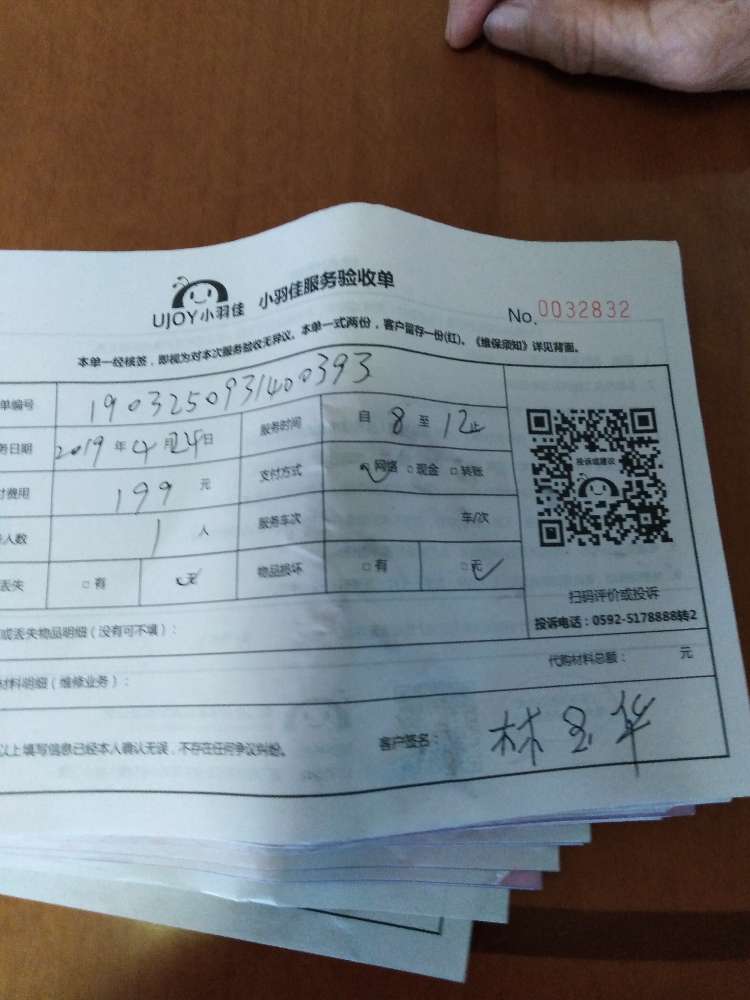 UJOY小羽佳 小羽佳服务验收单
No. 0032832
本单一经核签，即视为对本次服务验收无异议。本单一式两份，客户留存一份(红)。《维保须知》详见背面。
单编号 1903250931400393
务日期 2019年4月24日 服务时间 自 8 至 12止
付费用 199 元 支付方式 网络 □现金 □转账
人数 1 人 服务车次 车/次
丢失 □有 无 物品损坏 □有 □无
投诉或建议
扫码评价或投诉
投诉电话：0592-5178888转2
或丢失物品明细（没有可不填）：
材料明细（维修业务）： 代购材料总额： 元
以上填写信息已经本人确认无误，不存在任何争议纠纷。 客户签名： 林玉华